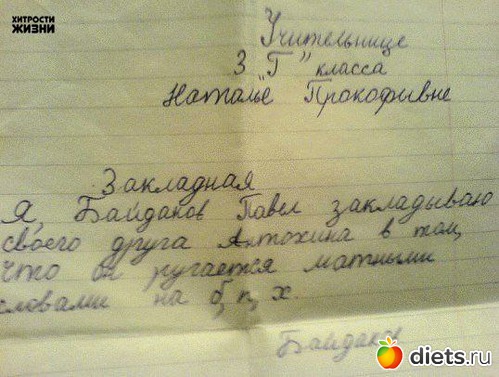 ХИТРОСТИ
ЖИЗНИ
Учительнице
3 "Г" класса
Наталье Прокофивне
Закладная
Я, Байдаков Павел закладываю
своего друга Антохина в том,
что он ругается матными
словами на б, п, х.
Байдаков
diets.ru